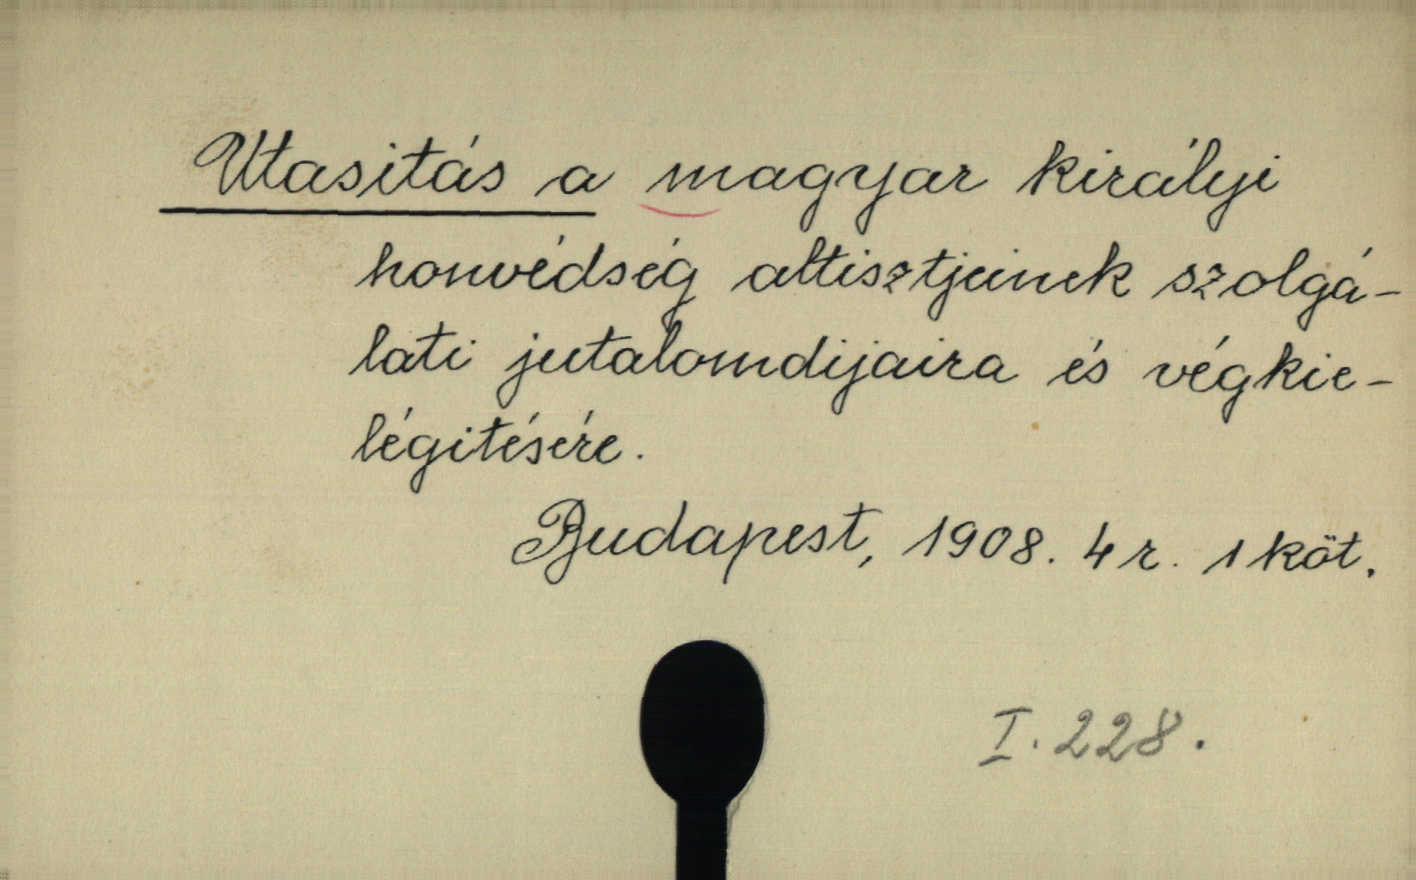 Utasitás a magyar királyi
honvédség altisztjeinek szolgá-
lati jutalomdijaira és végkie-
légitésére.
Budapest, 1908. 4 r. 1 köt.
I. 228.